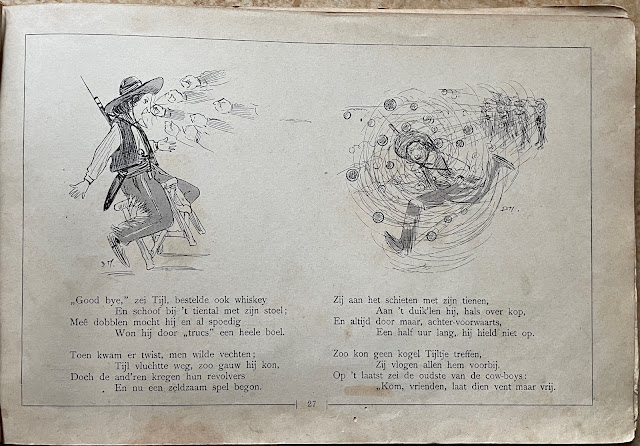 „Good bye," zei Tijl, bestelde ook whiskey
En schoof bij 't tiental met zijn stoel;
Meê dobblen mocht hij en al spoedig
Won hij door „trucs" een heele boel.
Toen kwam er twist, men wilde vechten;
Tijl vluchtte weg, zoo gauw hij kon,
Doch de and'ren kregen hun revolvers
En nu een zeldzaam spel begon.
Zij aan het schieten met zijn tienen,
Aan 't duik'len hij, hals over kop,
En altijd door maar, achter-voorwaarts,
Een half uur lang, hij hield niet op.
Zoo kon geen kogel Tijltje treffen,
Zij vlogen allen hem voorbij.
Op 't laatst zei de oudste van de cow-boys:
„Kom, vrienden, laat dien vent maar vrij.
27